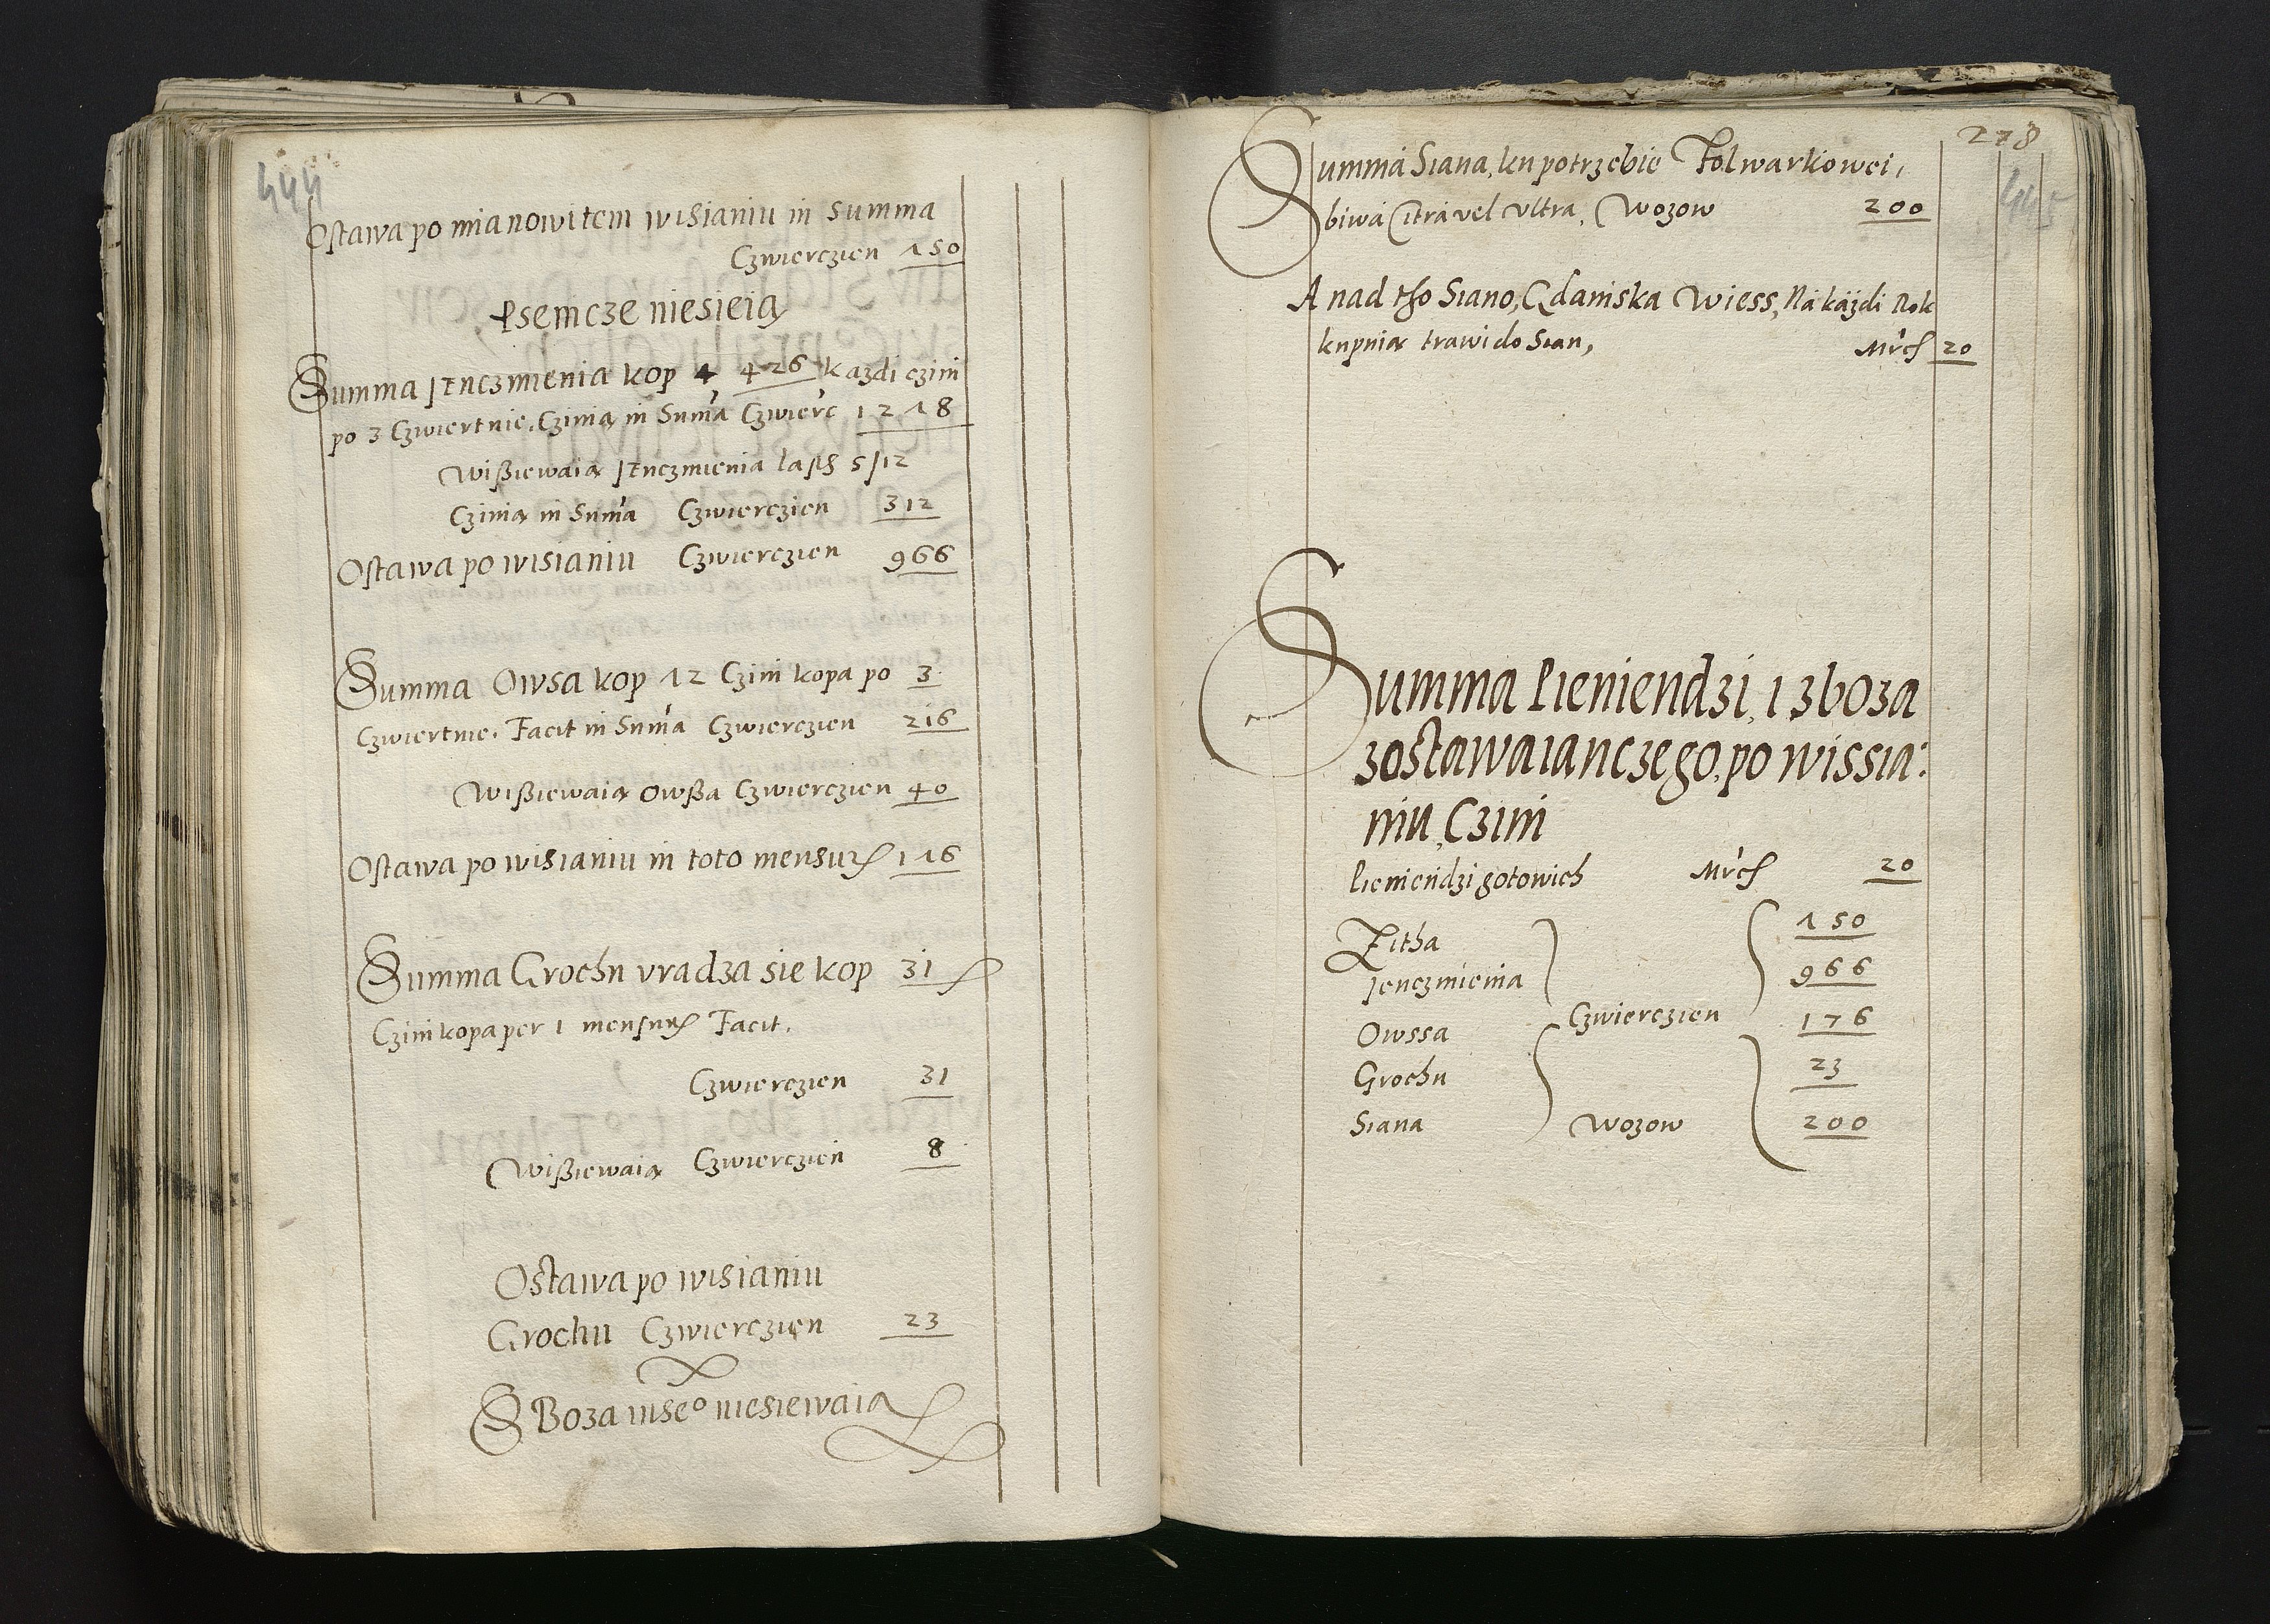 444
Ostawa po mianowitem wisianiu in summa
Czwierczien 150
Psemcze niesieią
Summa Jęnczmienia kop 4 426 kazdi czini
po 3 Czwiertnie. Czinią in Sum̃a Czwierc 1218
Wißiewaią Jęnczmienia lasth 5/12
Czinią in Sum̃a Czwierczien 312
Ostawa po wisianiu Czwierczien 966
Summa Owsa kop 12 Czini kopa po 3
Czwiertnie. Facit in Sum̃a Czwierczien 216
Wißiewaią Owßa Czwierczien 40
Ostawa po wisianiu in toto mensur 116
Summa Grochu vradza sie kop 31
Czini kopa per 1 mensur Facit.
Czwierczien 31
Wißiewaią Czwierczien 8
Ostawa po wisianiu
Grochu Czwierczien 23
S Boza inseo niesiewaią
278
445
Summa Siana, ku potrzebie Folwarkowei,
biwa Citra vel Vltra, Wozow 200
A nad tho Siano, Gdaniska Wiess, Na każdi Rok
kupnią trawi do Sian, Mrc 20
Summa Pieniendzi, i zboza
zostawaianczego, po wissia:
niu, Czini
Pieniendzi gotowich Mrc 20
Zitha 150
Jenczmienia 966
Czwierczien
Owssa 176
Grochu 23
Siana Wozow 200